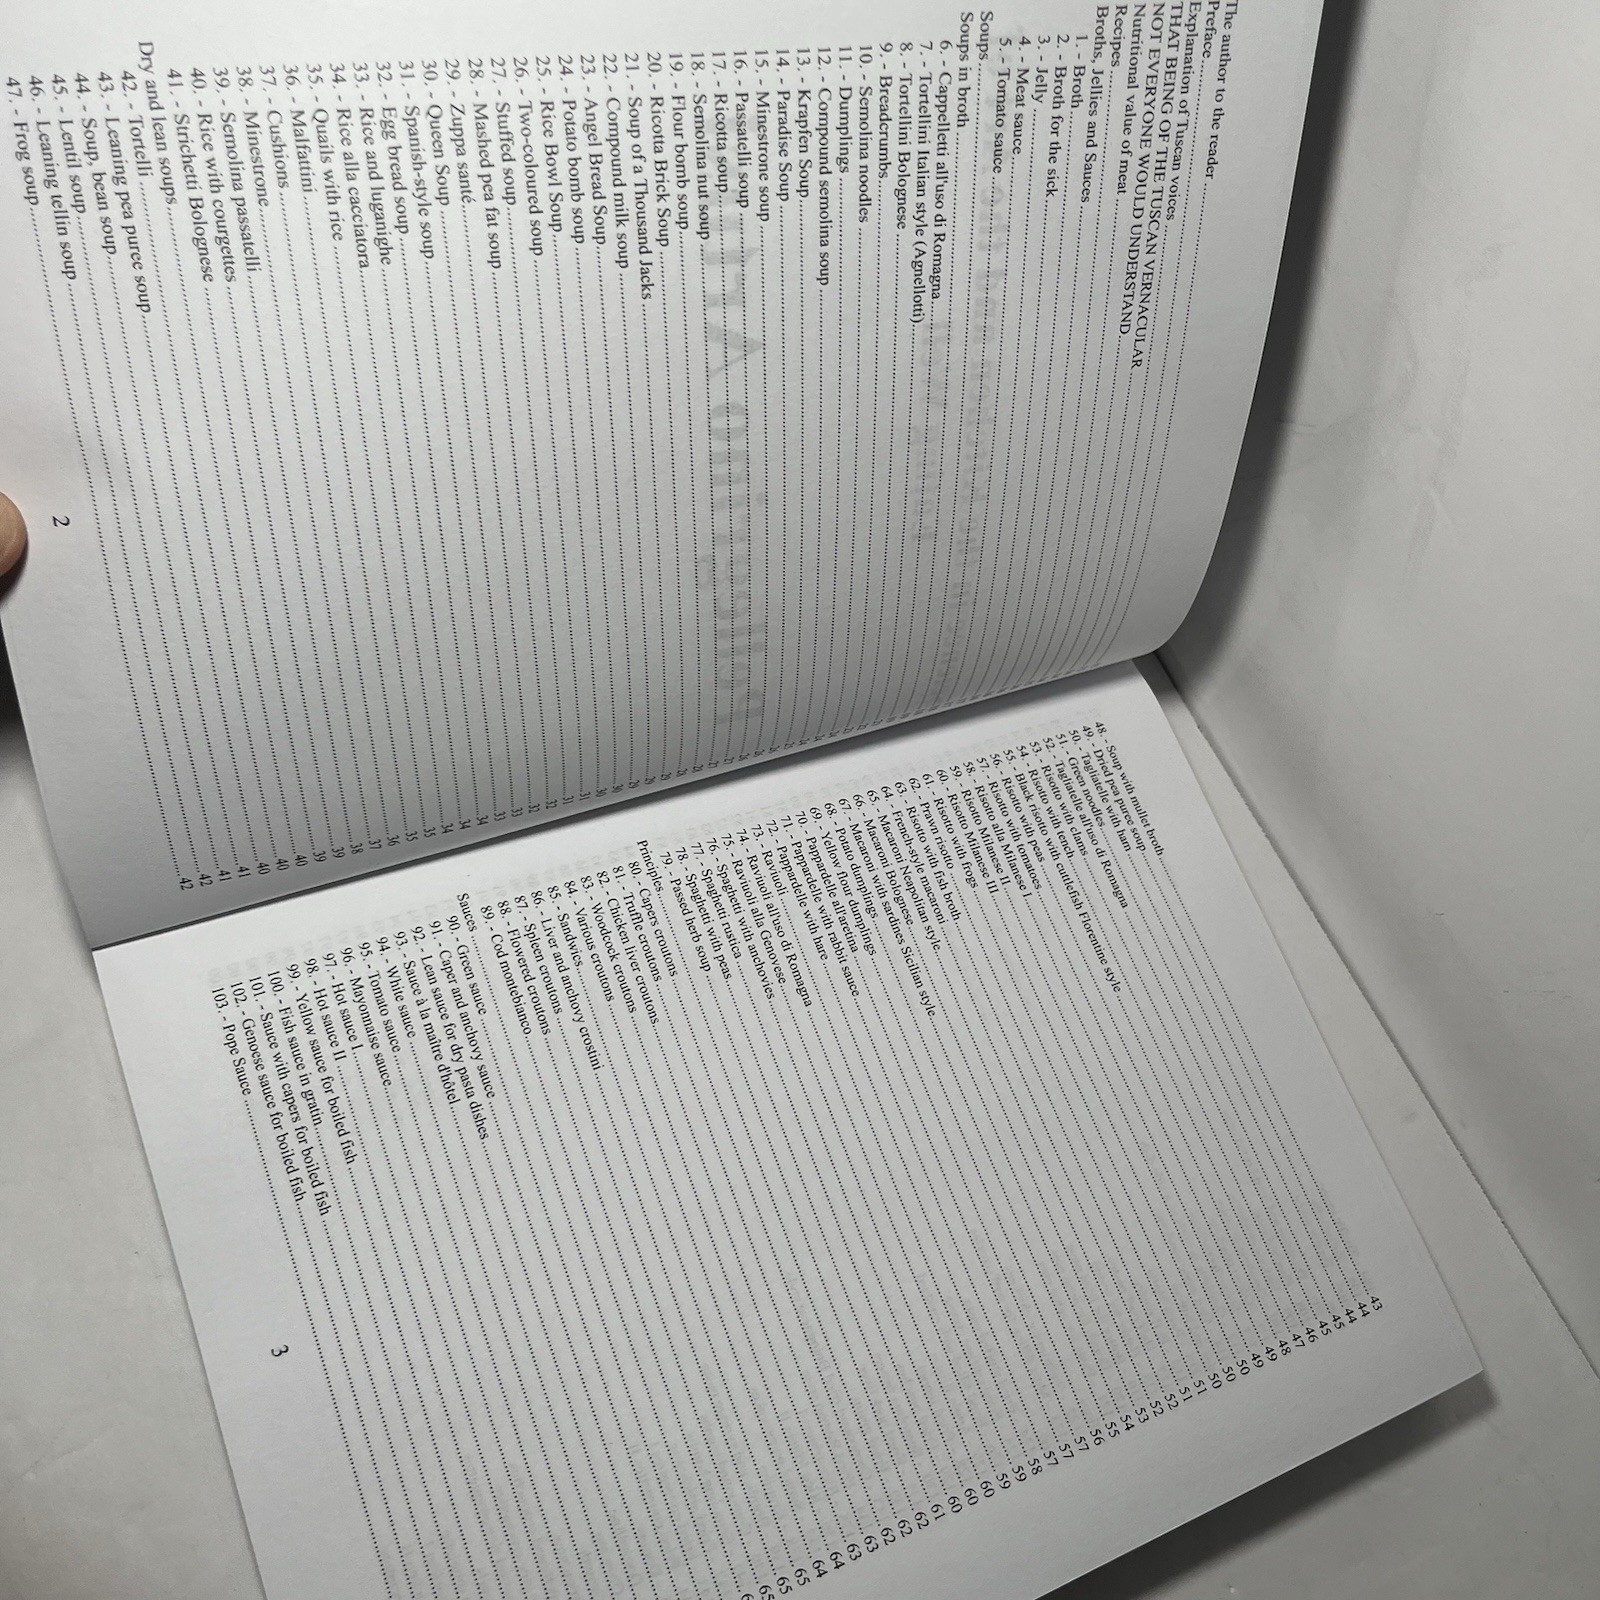 The author to the reader
Preface
Explanation of Tuscan voices
THAT BEING OF THE TUSCAN VERNACULAR
NOT EVERYONE WOULD UNDERSTAND
Nutritional value of meat
Recipes
Broths, Jellies and Sauces
1. - Broth
2. - Broth for the sick
3. - Jelly
4. - Meat sauce
5. - Tomato sauce
Soups
Soups in broth
6. - Cappelletti all'uso di Romagna
7. - Tortellini Italian style (Agnellotti)
8. - Tortellini Bolognese
9. - Breadcrumbs
10. - Semolina noodles
11. - Dumplings
12. - Compound semolina soup
13. - Krapfen Soup
14. - Paradise Soup
15. - Minestrone soup
16. - Passatelli soup
17. - Ricotta soup
18. - Semolina nut soup
19. - Flour bomb soup
20. - Ricotta Brick Soup
21. - Soup of a Thousand Jacks
22. - Compound milk soup 29
23. - Angel Bread Soup 29
24. - Potato bomb soup 30
25. - Rice Bowl Soup 30
26. - Two-coloured soup 31
27. - Stuffed soup 31
28. - Mashed pea fat soup 32
29. - Zuppa santé 32
30. - Queen Soup 33
31. - Spanish-style soup 33
32. - Egg bread soup 34
33. - Rice and luganighe 34
34. - Rice alla cacciatora 34
35. - Quails with rice 35
36. - Malfattini 35
37. - Cushions 36
38. - Minestrone 37
39. - Semolina passatelli 38
40. - Rice with courgettes 39
41. - Strichetti Bolognese 39
Dry and lean soups 40
42. - Tortelli 40
43. - Leaning pea puree soup 40
44. - Soup, bean soup 41
45. - Lentil soup 41
46. - Leaning tellin soup 42
47. - Frog soup 42
2
48. - Soup with mullet broth 43
49. - Dried pea puree soup 44
50. - Tagliatelle with ham 44
51. - Green noodles 45
52. - Tagliatelle all'uso di Romagna 45
53. - Risotto with clams 46
54. - Risotto with tench 47
55. - Black risotto with cuttlefish Florentine style 48
56. - Risotto with peas 49
57. - Risotto with tomatoes 49
58. - Risotto alla Milanese I 50
59. - Risotto Milanese II 50
60. - Risotto Milanese III 50
61. - Risotto with frogs 51
62. - Prawn risotto 51
63. - Risotto with fish broth 52
64. - French-style macaroni 52
65. - Macaroni Neapolitan style 53
66. - Macaroni Bolognese 54
67. - Macaroni with sardines Sicilian style 55
68. - Potato dumplings 56
69. - Yellow flour dumplings 57
70. - Pappardelle all'aretina 57
71. - Pappardelle with rabbit sauce 57
72. - Pappardelle with hare 58
73. - Raviuoli 59
74. - Raviuoli all'uso di Romagna 59
75. - Raviuoli alla Genovese 60
76. - Spaghetti with anchovies 60
77. - Spaghetti rustica 60
78. - Spaghetti with peas 61
79. - Passed herb soup 62
Principles 62
80. - Capers croutons 62
81. - Truffle croutons 63
82. - Chicken liver croutons 63
83. - Woodcock croutons 64
84. - Various croutons 64
85. - Sandwics 65
86. - Liver and anchovy crostini 65
87. - Spleen croutons 65
88. - Flowered croutons
89. - Cod montebianco
Sauces
90. - Green sauce
91. - Caper and anchovy sauce
92. - Lean sauce for dry pasta dishes
93. - Sauce à la maître d'hôtel
94. - White sauce
95. - Tomato sauce
96. - Mayonnaise sauce
97. - Hot sauce I
98. - Hot sauce II
99. - Yellow sauce for boiled fish
100. - Fish sauce in gratin
101. - Sauce with capers for boiled fish
102. - Genoese sauce for boiled fish
103. - Pope Sauce
3